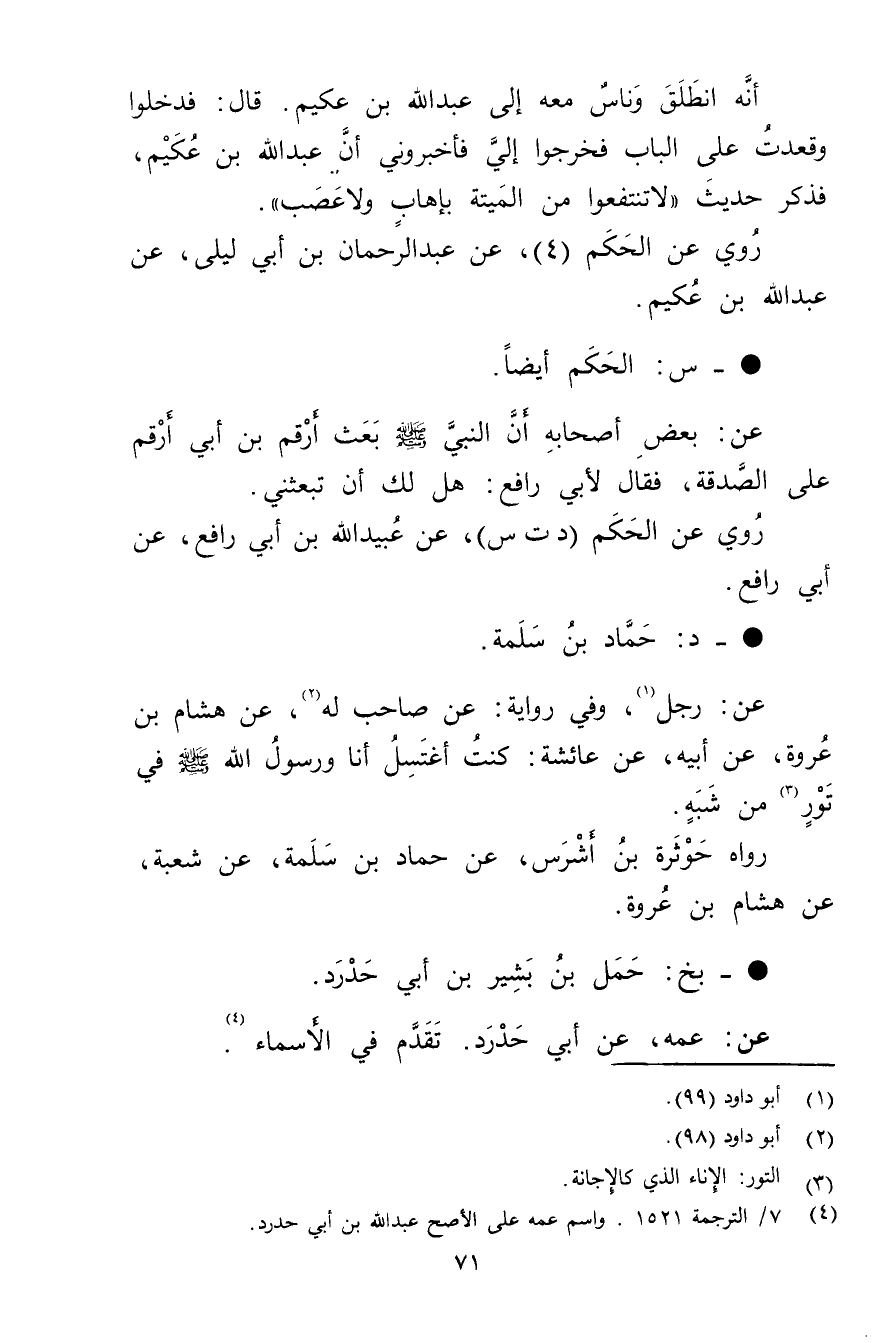 أنَّه انطَلَقَ وَناسٌ معه إلى عبدالله بن عكيم. قال: فدخلوا
وقعدتُ على الباب فخرجوا إليَّ فأخبروني أنَّ عبدالله بن عُكَيْم،
فذكر حديثَ «لاتنتفعوا من المَيتة بإهابٍ ولاعَصَب».
رُوي عن الحَكَم (٤)، عن عبدالرحمان بن أبي ليلى، عن
عبدالله بن عُكيم.
● ـ س: الحَكَم أيضاً.
عن: بعضِ أصحابهِ أَنَّ النبيَّ ﷺ بَعَث أَرْقم بن أبي أَرْقم
على الصَّدقة، فقال لأبي رافع: هل لك أن تبعثني.
رُوي عن الحَكَم (د ت س)، عن عُبيدالله بن أبي رافع، عن
أبي رافع.
● ـ د: حَمَّاد بنُ سَلَمة.
عن: رجل(١)، وفي رواية: عن صاحب له(٢)، عن هشام بن
عُروة، عن أبيه، عن عائشة: كنتُ أغتَسِلُ أنا ورسولُ الله ﷺ في
تَوْرٍ(٣) من شَبَهٍ.
رواه حَوْثَرة بنُ أَشْرَس، عن حماد بن سَلَمة، عن شعبة،
عن هشام بن عُروة.
● ـ بخ: حَمَل بنُ بَشِير بن أبي حَدْرَد.
عن: عمه، عن أبي حَدْرَد. تَقَدَّم في الأَسماء(٤).
(١) أبو داود (٩٩).
(٢) أبو داود (٩٨).
(٣) التور: الإناء الذي كالإجانة.
(٤) ٧/ الترجمة ١٥٢١ . واسم عمه على الأصح عبدالله بن أبي حدرد.
٧١